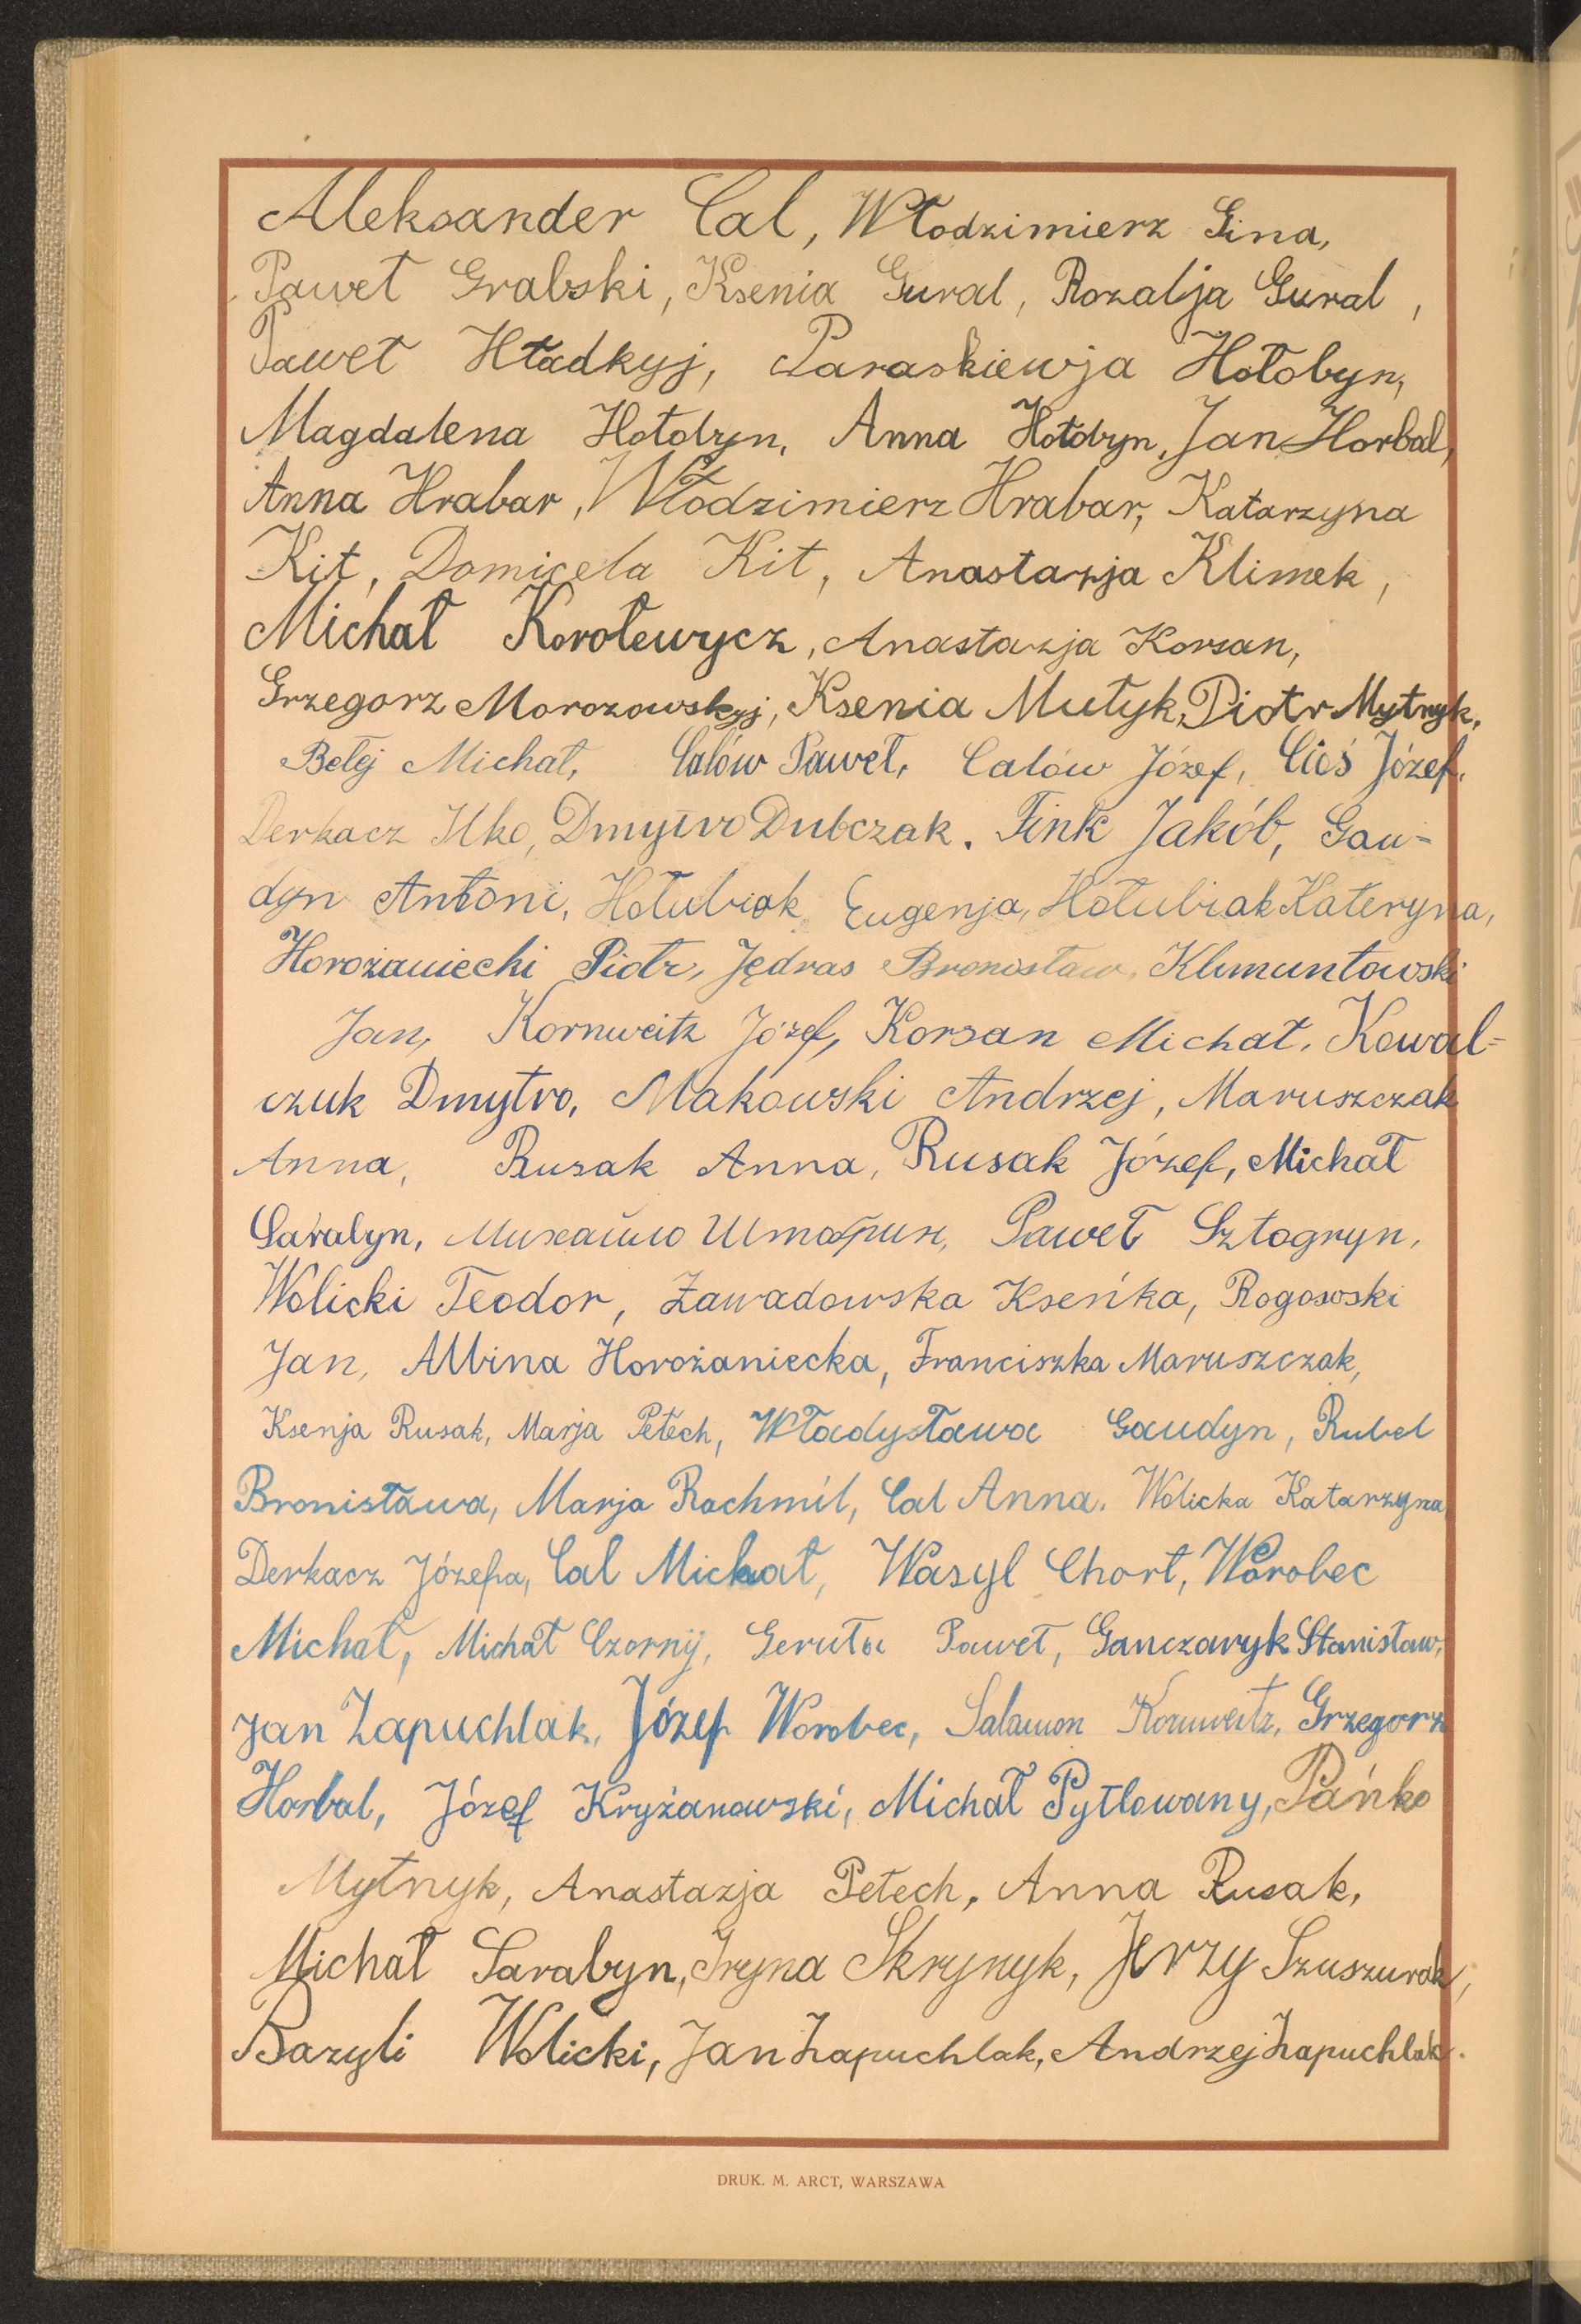 Aleksander Cal, Włodzimierz Gina,
Paweł Grabski, Ksenia Gural, Rozalja Gural,
Paweł Hładkyj, Paraskiewja Hołobyn,
Magdalena Hołobyn, Anna Hołobyn, Jan Horbal,
Anna Hrabar, Włodzimierz Hrabar, Katarzyna
Kit, Domicela Kit, Anastazja Klimek,
Michał Korolewycz, Anastazja Korsan,
Grzegorz Morozowskyj, Ksenia Mutyk, Piotr Mytnyk,
Bełej Michał, Całów Paweł, Całów Józef, Cioś Józef,
Derkacz Ilko, Dmytro Dubczak. Fink Jakób, Gau-
dyn Antoni, Hołubiak Eugenja, Hołubiak Kateryna,
Horożaniecki Piotr, Jędras Bronosław, Klimuntowski
Jan, Kornweitz Józef, Korsan Michał, Kowal-
czuk Dmytro, Makowski Andrzej, Maruszczak
Anna, Rusak Anna, Rusak Józef, Michał
Sarabyn, Михайло Штогрин, Paweł Sztogryn,
Wolicki Teodor, Zawadowska Kseńka, Rogososki
Jan, Albina Horożaniecka, Franciszka Maruszczak,
Ksenja Rusak, Marja Petech, Władysława Gaudyn, Rubel
Bronisława, Marja Rachmil, Cal Anna, Wolicka Katarzyna,
Derkacz Józefa, Cal Michał, Wasyl Chort, Worobec
Michał, Michał Czornij, Geruła Paweł, Ganczaryk Stanisław,
Jan Zapuchlak, Józef Worobec, Salamon Kornweitz, Grzegorz
Horbal, Józef Kryżanowski, Michał Pytlowany, Pańko
Mytnyk, Anastazja Petech, Anna Rusak,
Michał Sarabyn, Iryna Skrynyk, Jerzy Szuszurak,
Bazyli Wolicki, Jan Zapuchlak, Andrzej Zapuchlak.
DRUK. M. ARCT, WARSZAWA